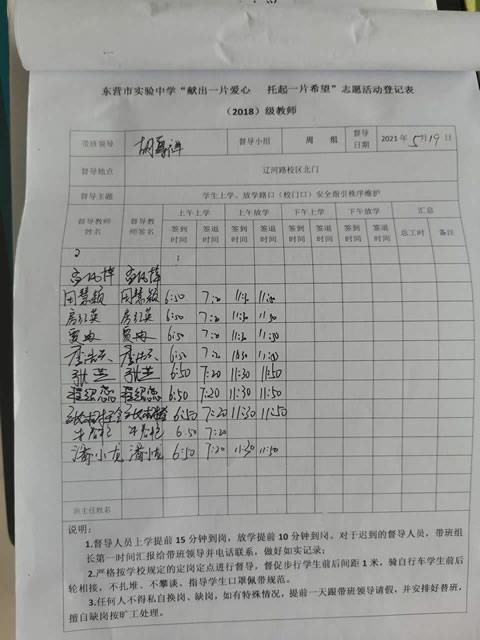 东营市实验中学“献出一片爱心 托起一片希望”志愿活动登记表
（2018）级教师
带班领导 督导小组 周 组 督导日期 2021年5月19日
督导地点 辽河路校区北门
督导主题 学生上学、放学路口（校门口）安全指引秩序维护
督导教师姓名 督导教师签名 上午上学 上午放学 下午上学 下午放学 汇总
签到时间 签退时间 签到时间 签退时间 签到时间 签退时间 签到时间 签退时间 总工时 备注
周慧颖 周慧颖 6:50 7:20 11:30 11:50
房红英 房红英 6:50 7:20 11:30 11:50
贾冉 贾冉 6:50 7:20 11:30 11:50
6:50 7:20 11:50
张芸 张芸 6:50 7:20 11:30 11:50
程绍蕊 程绍蕊 6:50 7:20 11:30 11:50
6:50 7:20 11:30 11:50
6:50 7:20
潘小龙 潘小龙 6:50 7:20 11:30 11:50
班主任姓名
说明：
1.督导人员上学提前 15 分钟到岗，放学提前 10 分钟到岗。对于迟到的督导人员，带班组
长第一时间汇报给带班领导并电话联系，做好如实记录；
2.严格按学校规定的定岗定点进行督导，督促步行学生前后间距 1 米，骑自行车学生前后
轮相接，不扎堆、不攀谈、指导学生口罩佩带规范。
3.任何人不得私自换岗、缺岗，如有特殊情况，提前一天跟带班领导请假，并安排好替班，
擅自缺岗按旷工处理。